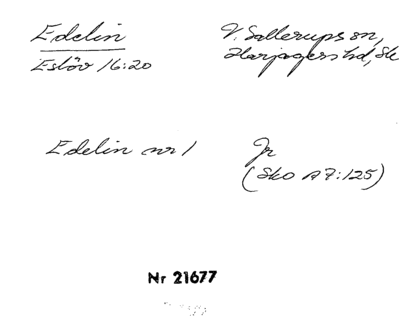 Edelin V. Sallerups sn,
Eslöv 16:20 Harjagers hd, Sk
Edelin nr 1 Jr
(Sko A7:125)
Nr 21677